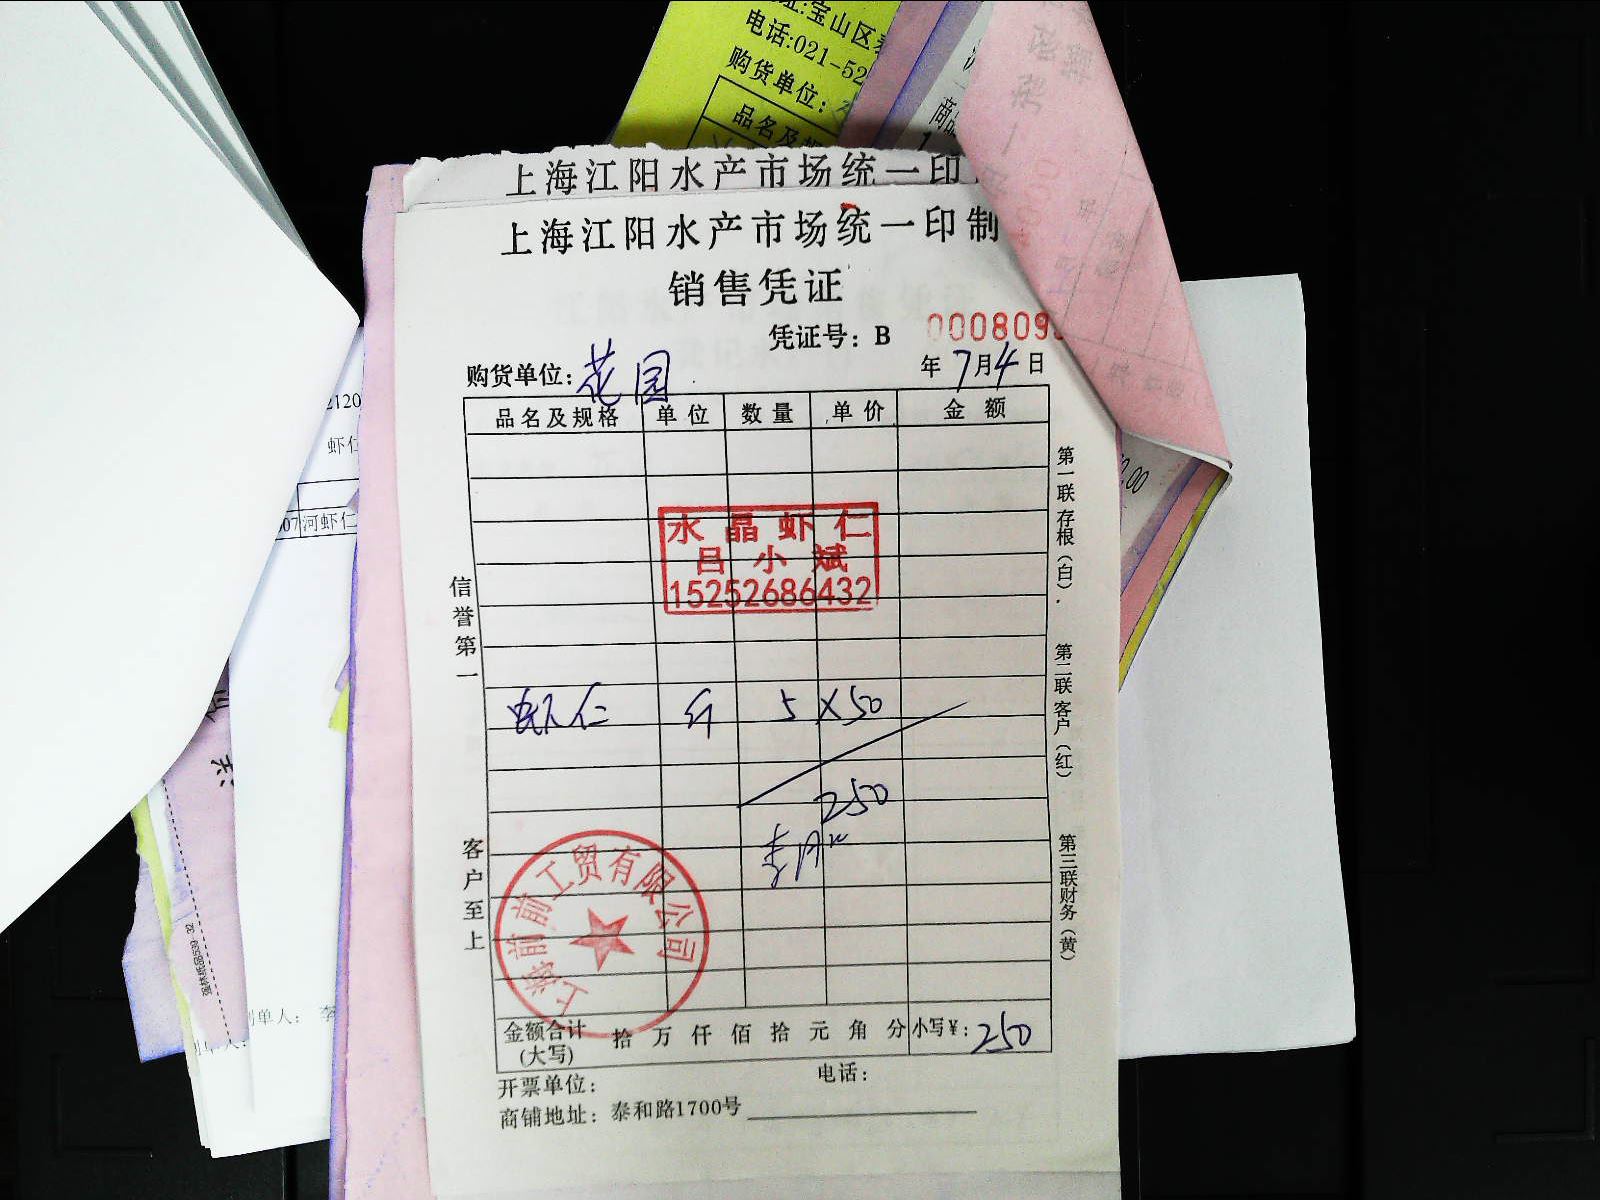 址:宝山区泰
电话:021-52
购货单位:
品名及规
商品
上海江阳水产市场统一印
上海江阳水产市场统一印制
销售凭证
凭证号：B 0008093
购货单位：花园 年7月4日
品名及规格 单位 数量 单价 金额
水晶虾仁
吕小斌
15252686432
虾仁 斤 5 X 50
250
信誉第一
客户至上
第一联存根（白）.
第二联客户（红）
第三联财务（黄）
上海前前工贸有限公司
金额合计（大写） 拾 万 仟 佰 拾 元 角 分 小写¥：250
开票单位： 电话：
商铺地址：泰和路1700号
2120
虾仁
07 河虾仁
制单人： 李
0.00